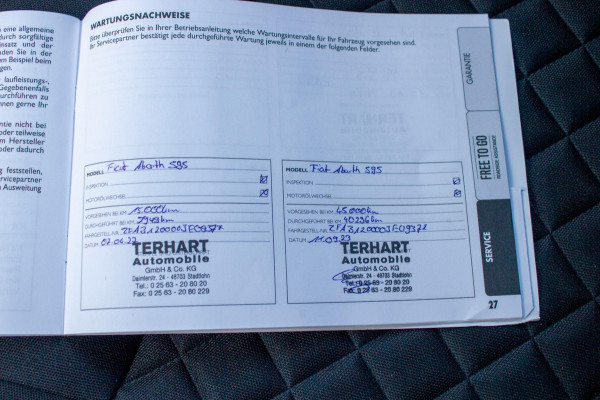 e eine allgemeine
durch sorgfältige
insatz und der
nden Sie in der
m Beispiel beim
gen.
laufleistungs-,
Gegebenenfalls
durchführen zu
nnen gerne Ihr
ntie nicht bei
oder teilweise
m Hersteller
oder dadurch
feststellen,
Servicepartner
n Ausweitung
WARTUNGSNACHWEISE
Bitte überprüfen Sie in Ihrer Betriebsanleitung welche Wartungsintervalle für Ihr Fahrzeug vorgesehen sind.
Ihr Servicepartner bestätigt jede durchgeführte Wartung jeweils in einem der folgenden Felder.
MODELL Fiat Abarth 595
INSPEKTION
MOTORÖLWECHSEL
VORGESEHEN BEI KM 15.000km
DURCHGEFÜHRT BEI KM
FAHRGESTELL NR.
DATUM
TERHART
Automobile
GmbH & Co. KG
Daimlerstr. 24 · 48703 Stadtlohn
Tel.: 0 25 63 - 20 80 20
Fax: 0 25 63 - 20 80 229
MODELL Fiat Abarth 595
INSPEKTION
MOTORÖLWECHSEL
VORGESEHEN BEI KM 45.000km
DURCHGEFÜHRT BEI KM 40236km
FAHRGESTELL NR.
DATUM
TERHART
Automobile
GmbH & Co. KG
Daimlerstr. 24 - 48703 Stadtlohn
Tel.: 0 25 63 - 20 80 20
Fax: 0 25 63 - 20 80 229
GARANTIE
FREE TO GO
SERVICE
27